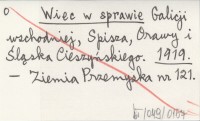 o
Wiec w sprawie Galicji
wschodniej, Spisza, Orawy i
Śląska Cieszyńskiego. 1919.
– Ziemia Przemyska nr 121.